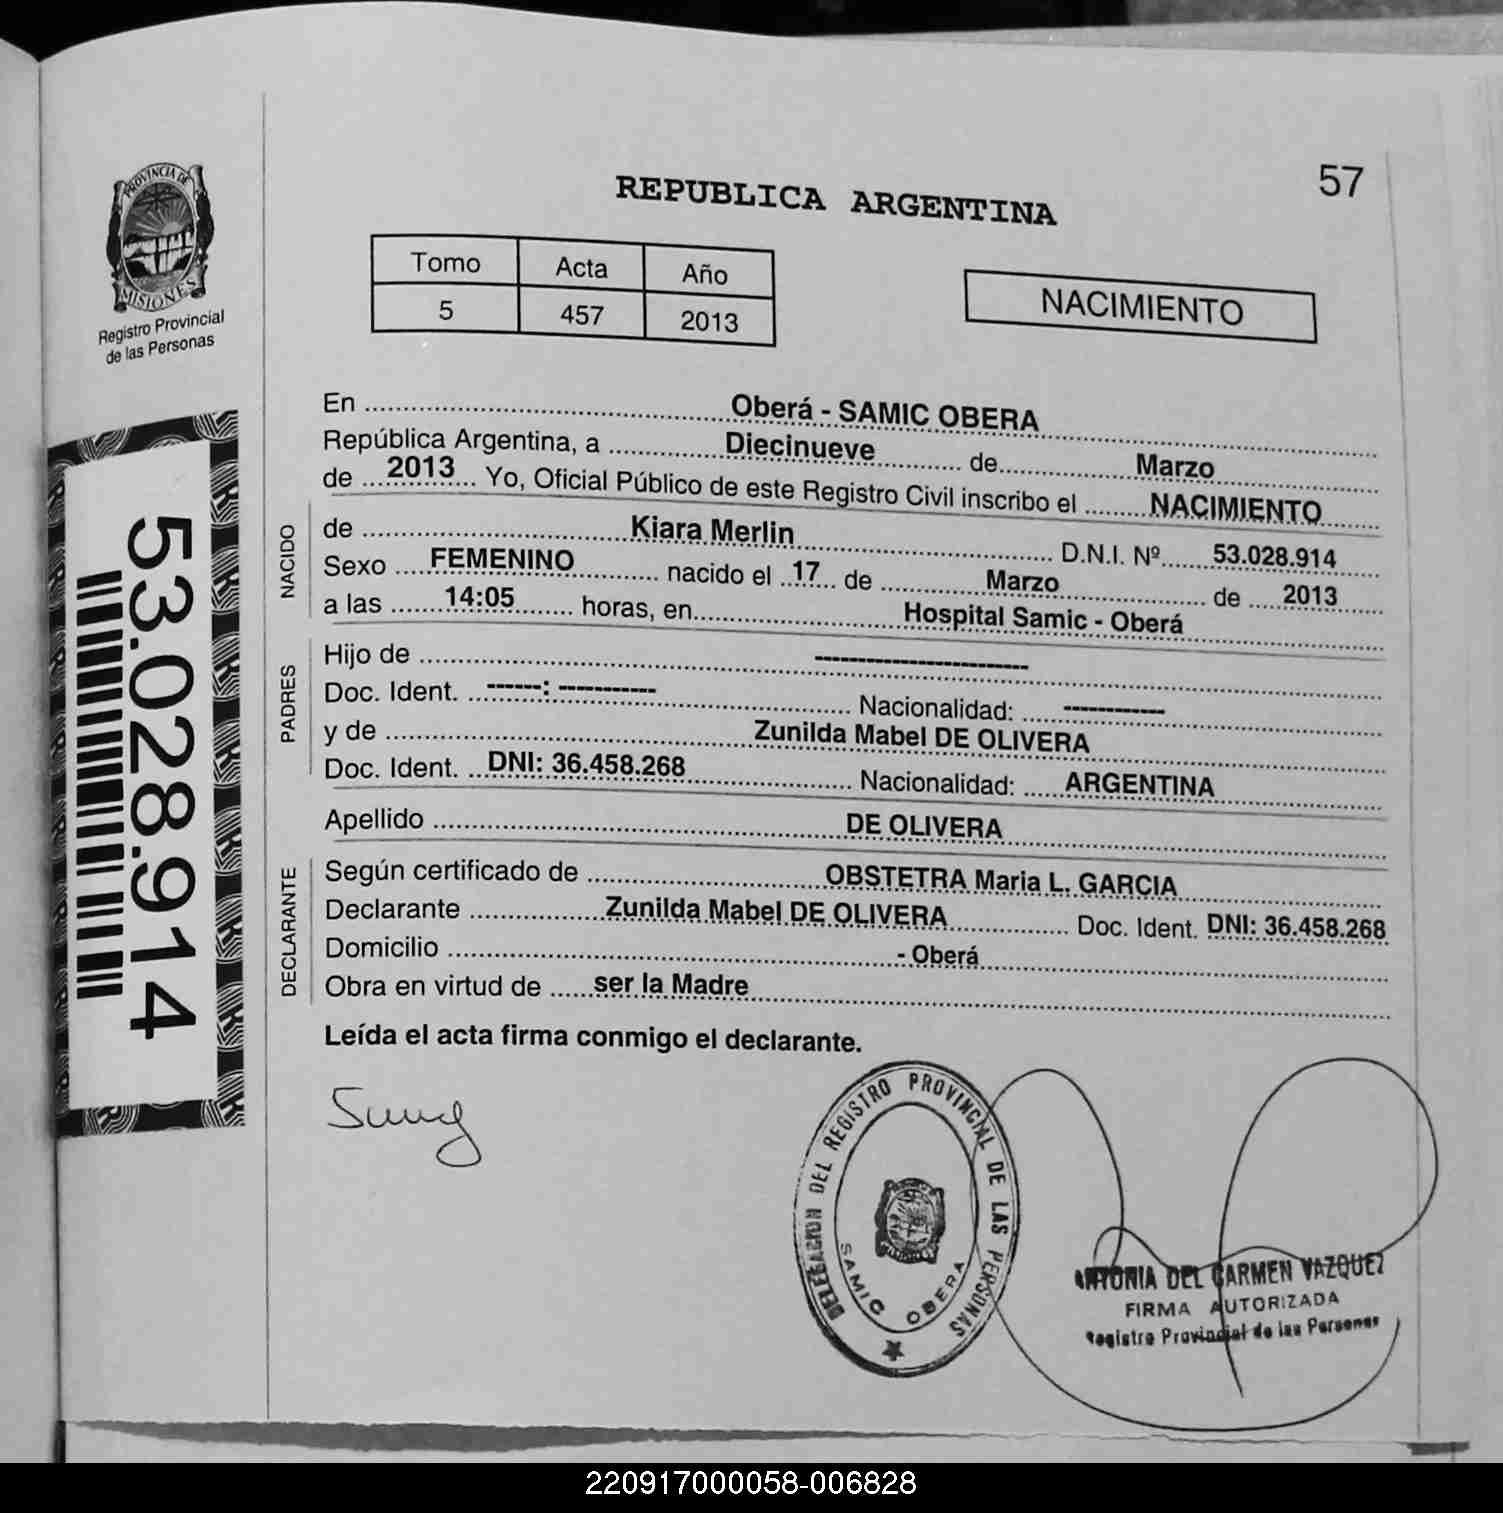 57
REPUBLICA ARGENTINA
PROVINCIA DE
MISIONES
Registro Provincial
de las Personas
Tomo Acta Año
5 457 2013
NACIMIENTO
53.028.914
En Oberá - SAMIC OBERA
República Argentina, a Diecinueve de Marzo
de 2013 Yo, Oficial Público de este Registro Civil inscribo el NACIMIENTO
NACIDO
de Kiara Merlin D.N.I. Nº 53.028.914
Sexo FEMENINO nacido el 17 de Marzo de 2013
a las 14:05 horas, en Hospital Samic - Oberá
PADRES
Hijo de ------------------------
Doc. Ident. ------: ----------- Nacionalidad: ------------
y de Zunilda Mabel DE OLIVERA
Doc. Ident. DNI: 36.458.268 Nacionalidad: ARGENTINA
Apellido DE OLIVERA
DECLARANTE
Según certificado de OBSTETRA Maria L. GARCIA
Declarante Zunilda Mabel DE OLIVERA Doc. Ident. DNI: 36.458.268
Domicilio - Oberá
Obra en virtud de ser la Madre
Leída el acta firma conmigo el declarante.
DELEGACION DEL REGISTRO PROVINCIAL DE LAS PERSONAS
SAMIC OBERA
ANTONIA DEL CARMEN VAZQUEZ
FIRMA AUTORIZADA
Registro Provincial de las Personas
220917000058-006828